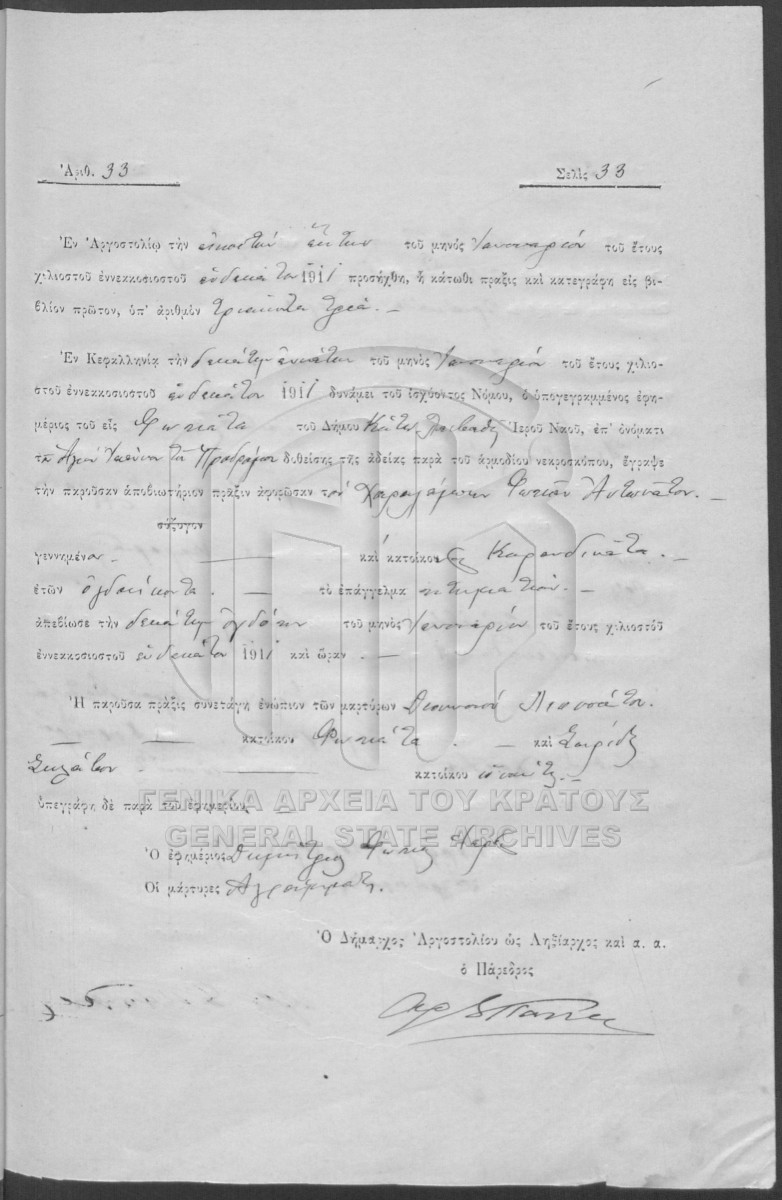 Ἀριθ. 33 Σελὶς 33
Ἐν Ἀργοστολίῳ τὴν εἰκοστὴν ἕκτην τοῦ μηνὸς Ἰανουαρίου τοῦ ἔτους
χιλιοστοῦ ἐννεακοσιοστοῦ ἑνδεκάτου 1911 προσήχθη, ἡ κάτωθι πρᾶξις καὶ κατεγράφη εἰς βι-
βλίον πρῶτον, ὑπ' ἀριθμὸν τριάκοντα τρία. —
Ἐν Κεφαλληνίᾳ τὴν δεκάτην ἐννάτην τοῦ μηνὸς Ἰανουαρίου τοῦ ἔτους χιλιο-
στοῦ ἐννεακοσιοστοῦ ἑνδεκάτου 1911 δυνάμει τοῦ ἰσχύοντος Νόμου, ὁ ὑπογεγραμμένος ἐφη-
μέριος τοῦ εἰς Φωκάτα τοῦ Δήμου Κάτω Λειβαθ. Ἱεροῦ Ναοῦ, ἐπ' ὀνόματι
τοῦ Ἁγίου Ἰωάννου τοῦ Προδρόμου δοθείσης τῆς ἀδείας παρὰ τοῦ ἁρμοδίου νεκροσκόπου, ἔγραψε
τὴν παροῦσαν ἀποβιωτήριον πρᾶξιν ἀφορῶσαν τὸν Χαραλάμπην Φωτίου Ἀντωνάτον. —
σύζυγον
γεννημένον — καὶ κατοίκον Καρανδινάτα. —
ἐτῶν ὀγδοήκοντα. — τὸ ἐπάγγελμα κτηματίου. —
ἀπεβίωσε τὴν δεκάτην ὀγδόην τοῦ μηνὸς Ἰανουαρίου τοῦ ἔτους χιλιοστοῦ
ἐννεακοσιοστοῦ ἑνδεκάτου 1911 καὶ ὥραν . —
Ἡ παροῦσα πρᾶξις συνετάγη ἐνώπιον τῶν μαρτύρων Διονυσίου
— — κατοίκου Φωκάτα . — καὶ
κατοίκου
ὑπεγράφη δὲ παρὰ τοῦ ἐφημερίου
ΓΕΝΙΚΑ ΑΡΧΕΙΑ ΤΟΥ ΚΡΑΤΟΥΣ
GENERAL STATE ARCHIVES
Ὁ ἐφημέριος Δημήτριος Φωκᾶς
Οἱ μάρτυρες Ἀγράμματοι.
Ὁ Δήμαρχος Ἀργοστολίου ὡς Ληξίαρχος καὶ α. α.
ὁ Πάρεδρος